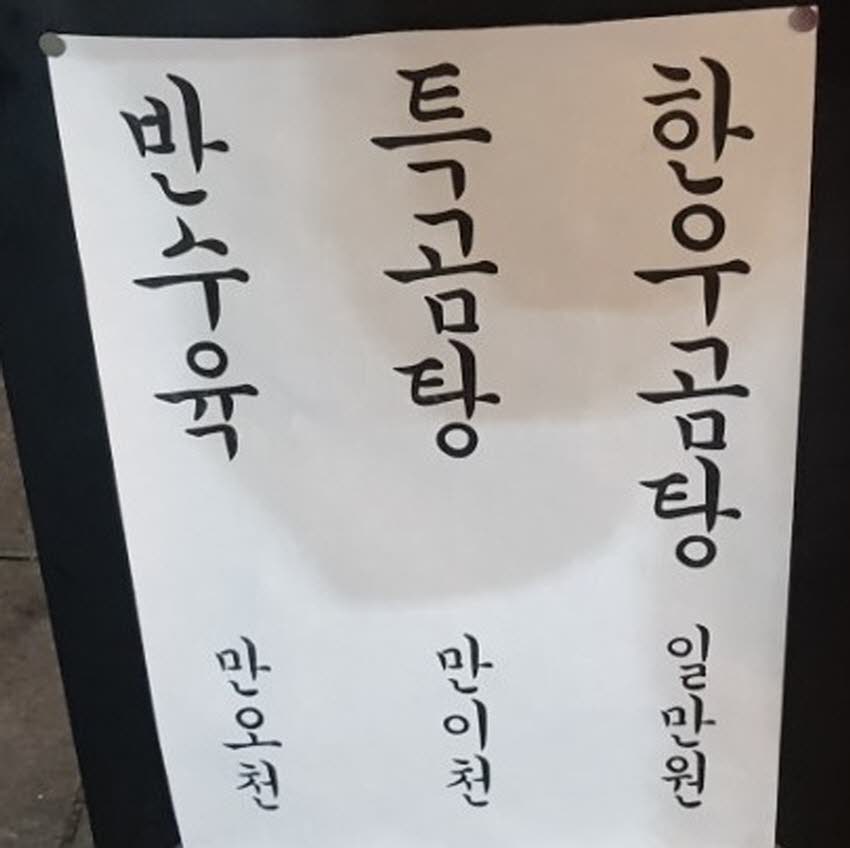 한우곰탕 일만원
특곰탕 만이천
반수육 만오천